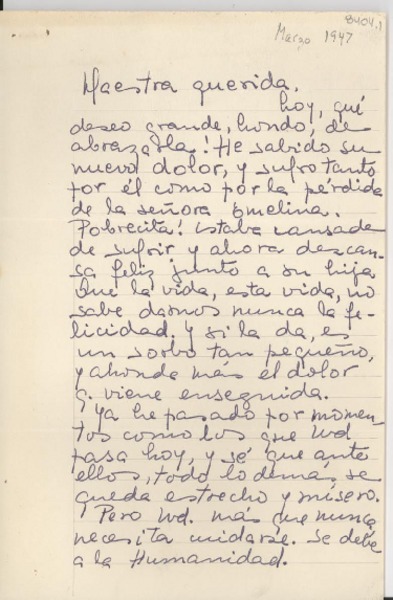 8404.1
Marzo 1947
Maestra querida,
hoy, qué
deseo grande, hondo, de
abrazarla! He sabido su
nuevo dolor, y sufro tanto
por él como por la pérdida
de la señora Emelina.
Pobrecita! Estaba cansada
de sufrir y ahora descan-
sa feliz junto a su hija.
Que la vida, esta vida, no
sabe darnos nunca la fe-
licidad. Y si la da, es
un sorbo tan pequeño,
y ahonda más el dolor
q. viene enseguida.
Ya he pasado por momen-
tos como los que Ud
pasa hoy, y sé que ante
ellos, todo lo demás se
queda estrecho y mísero.
Pero Ud. más que nunca,
necesita cuidarse. Se debe
a la Humanidad.